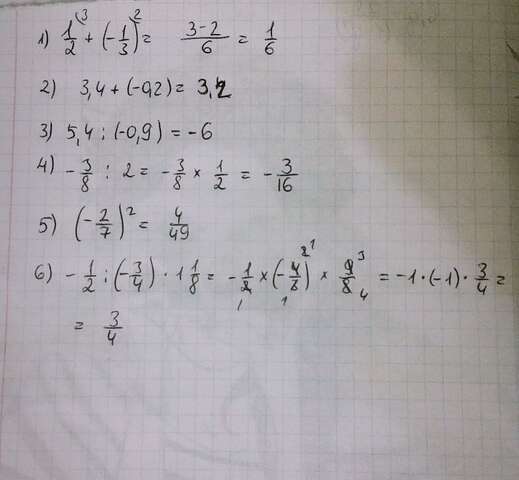 1) 1/2 + (-1/3) = (3-2)/6 = 1/6
2) 3,4 + (-0,2) = 3,2
3) 5,4 : (-0,9) = -6
4) -3/8 : 2 = -3/8 × 1/2 = -3/16
5) (-2/7)² = 4/49
6) -1/2 : (-3/4) · 1 1/8 = -1/2 × (-4/3) × 9/8 = -1 · (-1) · 3/4 =
= 3/4